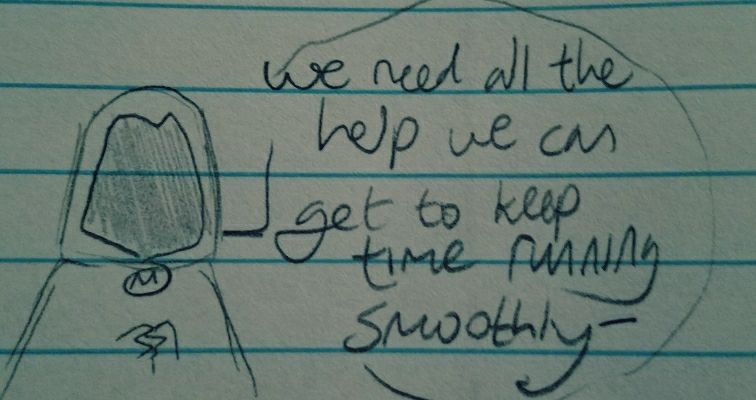 we need all the
help we can
get to keep
time running
smoothly-
M